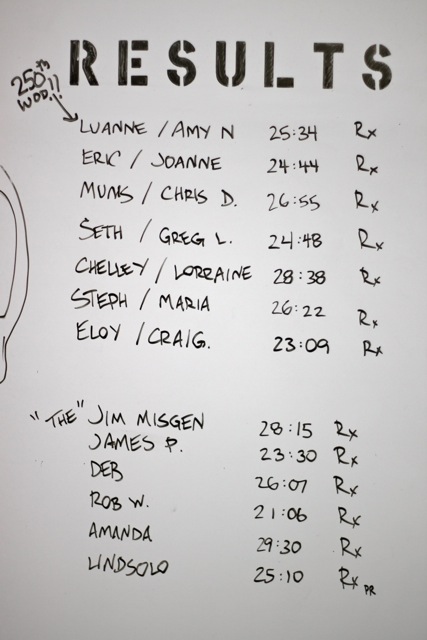 RESULTS
250th
WOD!!
LUANNE / AMY N 25:34 Rx
ERIC / JOANNE 24:44 Rx
MUMS / CHRIS D. 26:55 Rx
SETH / GREG L. 24:48 Rx
CHELLEY / LORRAINE 28:38 Rx
STEPH / MARIA 26:22 Rx
ELOY / CRAIG. 23:09 Rx
"THE" JIM MISGEN 28:15 Rx
JAMES P. 23:30 Rx
DEB 26:07 Rx
ROB W. 21:06 Rx
AMANDA 29:30 Rx
LINDSOLO 25:10 Rx PR